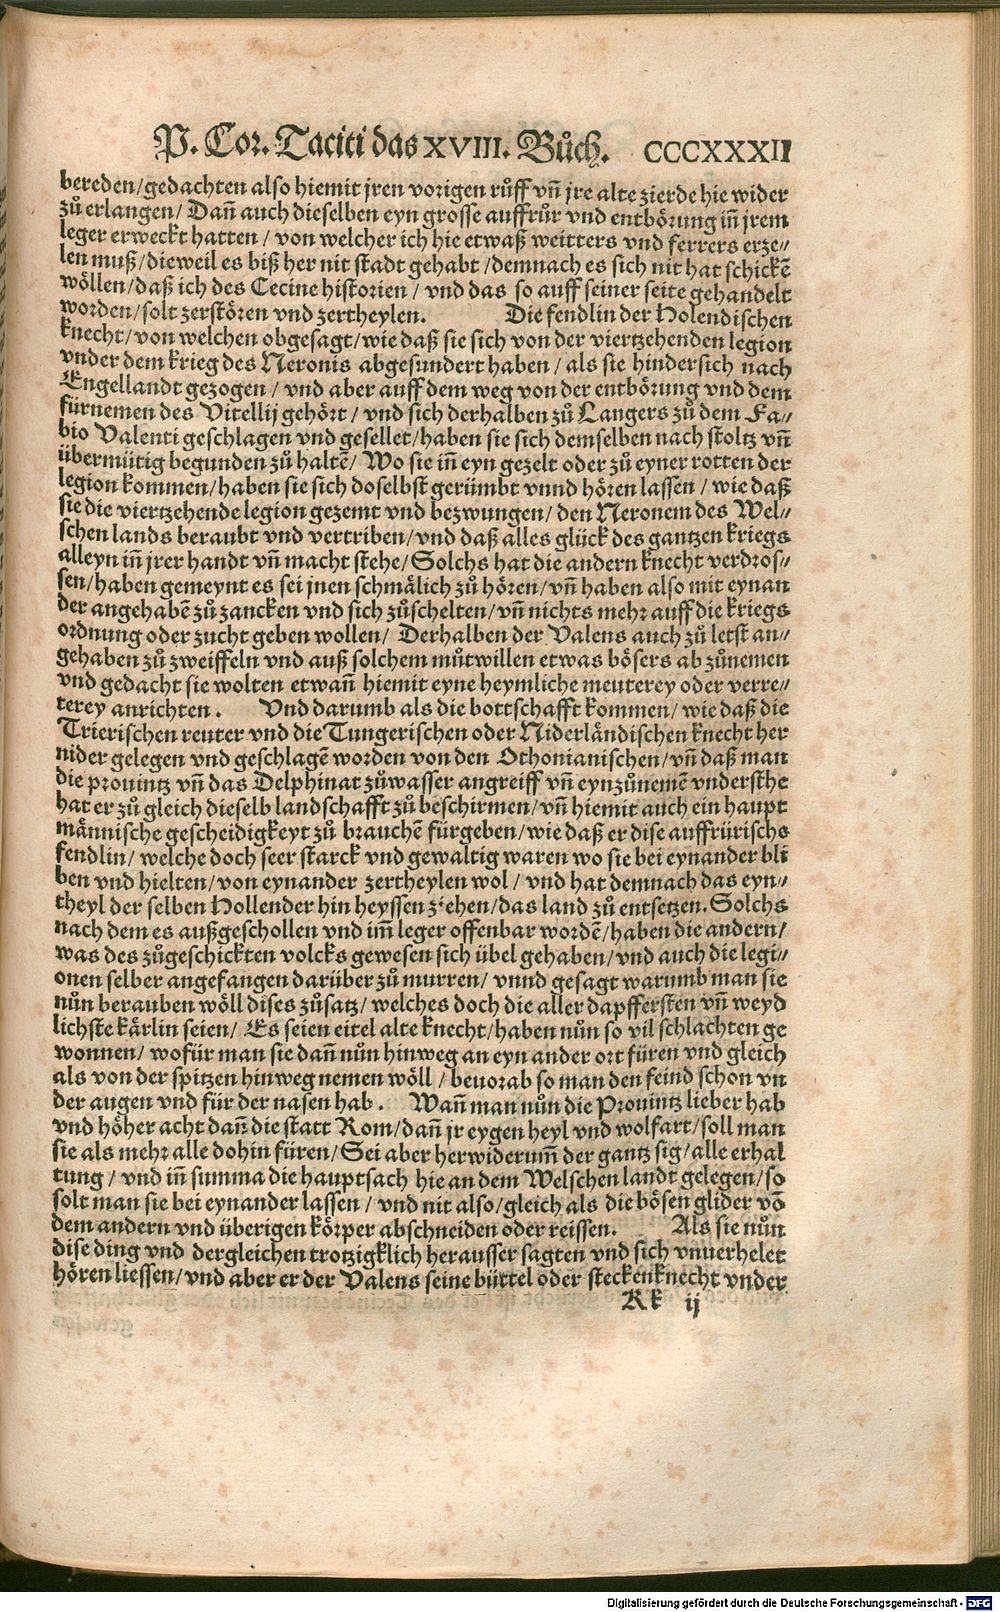 P. Cor. Taciti das XVIII. Bůch. CCCXXXII
bereden/gedachten also hiemit jren vorigen růff vñ jre alte zierde hie wider
zů erlangen/ Dañ auch dieselben eyn grosse auffrůr vnd entbörung iñ jrem
leger erweckt hatten / von welcher ich hie etwaß weitters vnd ferrers erze⸗
len muß/dieweil es biß her nit stadt gehabt /demnach es sich nit hat schickē
wöllen/daß ich des Cecine historien / vnd das so auff seiner seite gehandelt
worden/solt zerstören vnd zertheylen. Die fendlin der Holendischen
knecht/von welchen obgesagt/wie daß sie sich von der viertzehenden legion
vnder dem krieg des Neronis abgesundert haben / als sie hindersich nach
Engellandt gezogen / vnd aber auff dem weg von der entbörung vnd dem
fürnemen des Vitellij gehört / vnd sich derhalben zů Langers zů dem Fa⸗
bio Valenti geschlagen vnd gesellet/haben sie sich demselben nach stoltz vñ
übermütig begunden zů haltē/ Wo sie iñ eyn gezelt oder zů eyner rotten der
legion kommen/haben sie sich doselbst gerümbt vnnd hören lassen / wie daß
sie die viertzehende legion gezemt vnd bezwungen/den Neronem des Wel⸗
schen lands beraubt vnd vertriben/vnd daß alles glück des gantzen kriegs
alleyn iñ jrer handt vñ macht stehe/Solchs hat die andern knecht verdros⸗
sen/haben gemeynt es sei jnen schmälich zů hören/vñ haben also mit eynan
der angehabē zů zancken vnd sich zůschelten/vñ nichts mehr auff die kriegs
ordnung oder zucht geben wollen/ Derhalben der Valens auch zů letst an⸗
gehaben zů zweiffeln vnd auß solchem můtwillen etwas bösers ab zůnemen
vnd gedacht sie wolten etwañ hiemit eyne heymliche meuterey oder verre⸗
terey anrichten. Vnd darumb als die bottschafft kommen/ wie daß die
Trierischen reuter vnd die Tungerischen oder Niderländischen knecht her
nider gelegen vnd geschlagē worden von den Othonianischen/vñ daß man
die prouintz vñ das Delphinat zůwasser angreiff vñ eynzůnemē vndersthe
hat er zů gleich dieselb landschafft zů beschirmen/vñ hiemit auch ein haupt
männische gescheidigkeyt zů brauchē fürgeben/wie daß er dise auffrürischs
fendlin/ welche doch seer starck vnd gewaltig waren wo sie bei eynander bli
ben vnd hielten/von eynander zertheylen wol / vnd hat demnach das eyn⸗
theyl der selben Hollender hin heyssen ziehen/das land zů entsetzen. Solchs
nach dem es außgeschollen vnd im̃ leger offenbar wordē/haben die andern/
was des zůgeschickten volcks gewesen sich übel gehaben/vnd auch die legi⸗
onen selber angefangen darüber zů murren/ vnnd gesagt warumb man sie
nůn berauben wöll dises zůsatz/ welches doch die aller dapffersten vñ weyd
lichste kärlin seien/ Es seien eitel alte knecht/haben nůn so vil schlachten ge
wonnen/ wofür man sie dañ nůn hinweg an eyn ander ort füren vnd gleich
als von der spitzen hinweg nemen wöll / beuorab so man den feind schon vn
der augen vnd für der nasen hab. Wañ man nůn die Prouintz lieber hab
vnd höher acht dañ die statt Rom/dañ jr eygen heyl vnd wolfart/soll man
sie als mehr alle dohin füren/Sei aber herwiderum̃ der gantz sig/alle erhal
tung / vnd iñ summa die hauptsach hie an dem Welschen landt gelegen/so
solt man sie bei eynander lassen / vnd nit also/gleich als die bösen glider võ
dem andern vnd überigen körper abschneiden oder reissen. Als sie nůn
dise ding vnd dergleichen trotzigklich herausser sagten vnd sich vnuerhelet
hören liessen/vnd aber er der Valens seine büttel oder steckenknecht vnder
Kk ij
Digitalisierung gefördert durch die Deutsche Forschungsgemeinschaft - DFG